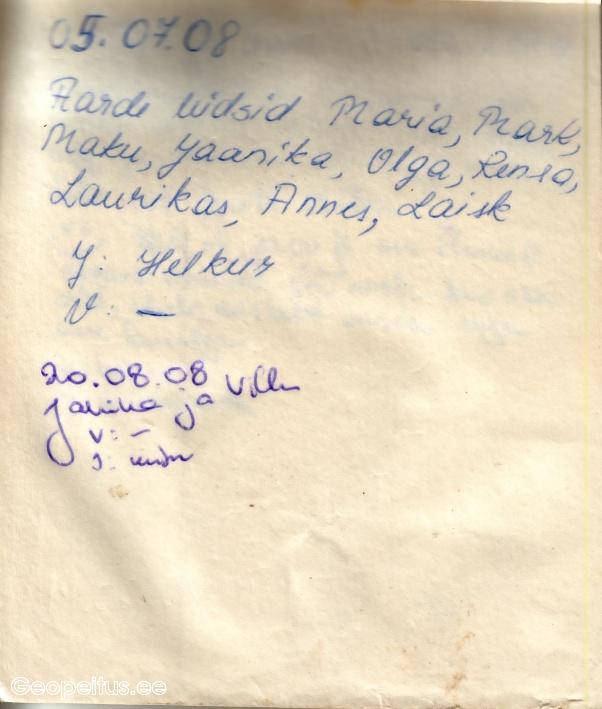 05.07.08
Aarde leidsid Maria, Mark,
Maku, Jaanika, Olga,
Laurikas, Annes, Laisk
J: Helkur
V: –
20.08.08
Janika ja Villu
V: –
J:
Geopeitus.ee